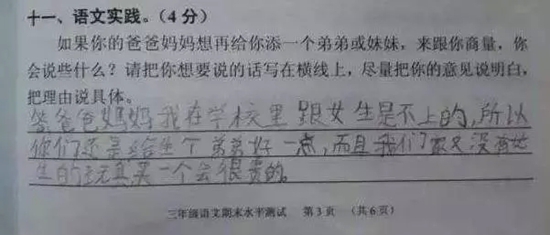 十一、语文实践。（4分）
如果你的爸爸妈妈想再给你添一个弟弟或妹妹，来跟你商量，你
会说些什么？请把你想要说的话写在横线上，尽量把你的意见说明白，
把理由说具体。
答爸爸妈妈我在学校里跟女生是不上的，所以
你们还是给生个弟弟好一点，而且我们家又没有女
生的玩具买一个会很贵的。
三年级语文期末水平测试 第3页 （共6页）